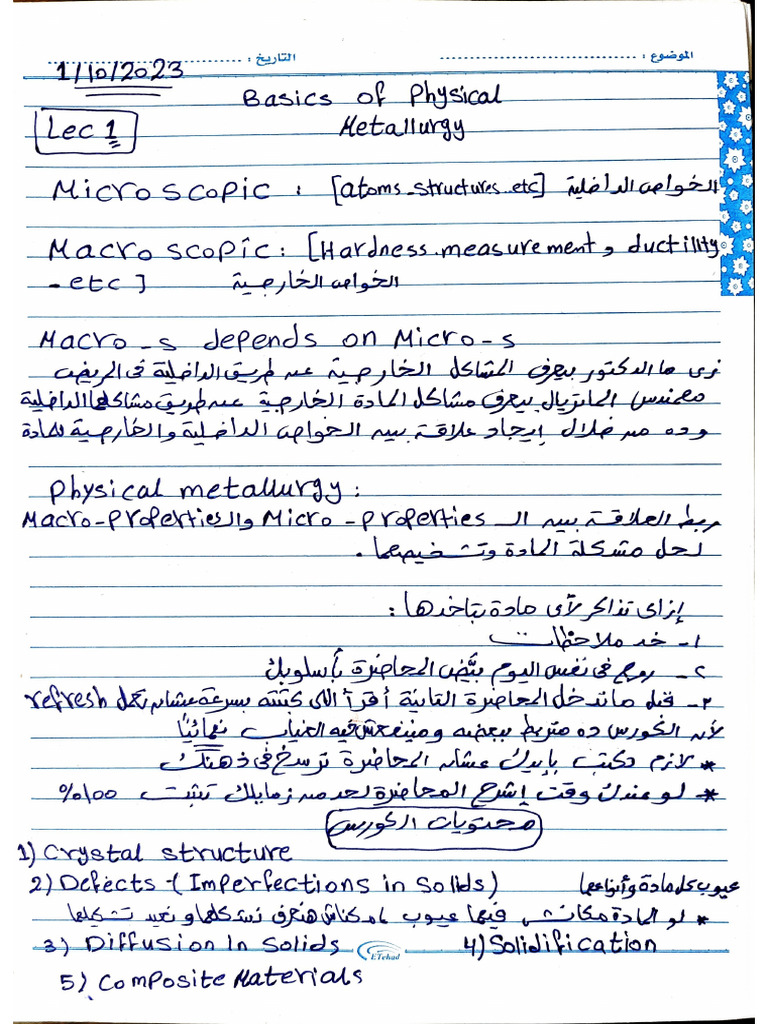 الموضوع : التاريخ :
1/10/2023
Basics of Physical
Lec 1
Metallurgy
Microscopic : [atoms-structures..etc] الخواص الداخلية
Macroscopic : [Hardness.measurement و ductility
-etc ] الخواص الخارجية
Macro-s depends on Micro-s
زى ما الدكتور بيعرف المشاكل الخارجية عن طريق الداخلية فى المريض
مهندس الماتريال بيعرف مشاكل المادة الخارجية عن طريق مشاكلها الداخلية
وده من خلال إيجاد علاقة بين الخواص الداخلية والخارجية للمادة
Physical metallurgy :
ربط العلاقة بين الـ Micro-properties والـ Macro-properties
لحل مشكلة المادة وتشخيصها .
إزاى تذاكر لأى مادة بتاخدها :
١- خد ملاحظات
٢- روح فى نفس اليوم بيّض المحاضرة بأسلوبك
٣- قبل ما تدخل المحاضرة التانية أقرأ اللى كتبته بسرعة عشان تعمل refresh
لأن الكورس ده متربط ببعضه ومينفعش فيه الغياب نهائيًا
* لازم تكتب بإيدك عشان المحاضرة ترسخ فى ذهنك
* لو عندك وقت إشرح المحاضرة لحد من زمايلك تثبت ١٠٠%
محتويات الكورس
1) Crystal structure
2) Defects-(Imperfections in Solids) عيوب كل مادة وأنواعها
* لو المادة مكانش فيها عيوب مكناش هنعرف نشكلها ونعيد تشكيلها
3) Diffusion In Solids 4) Solidification
ETehad
5) Composite Materials